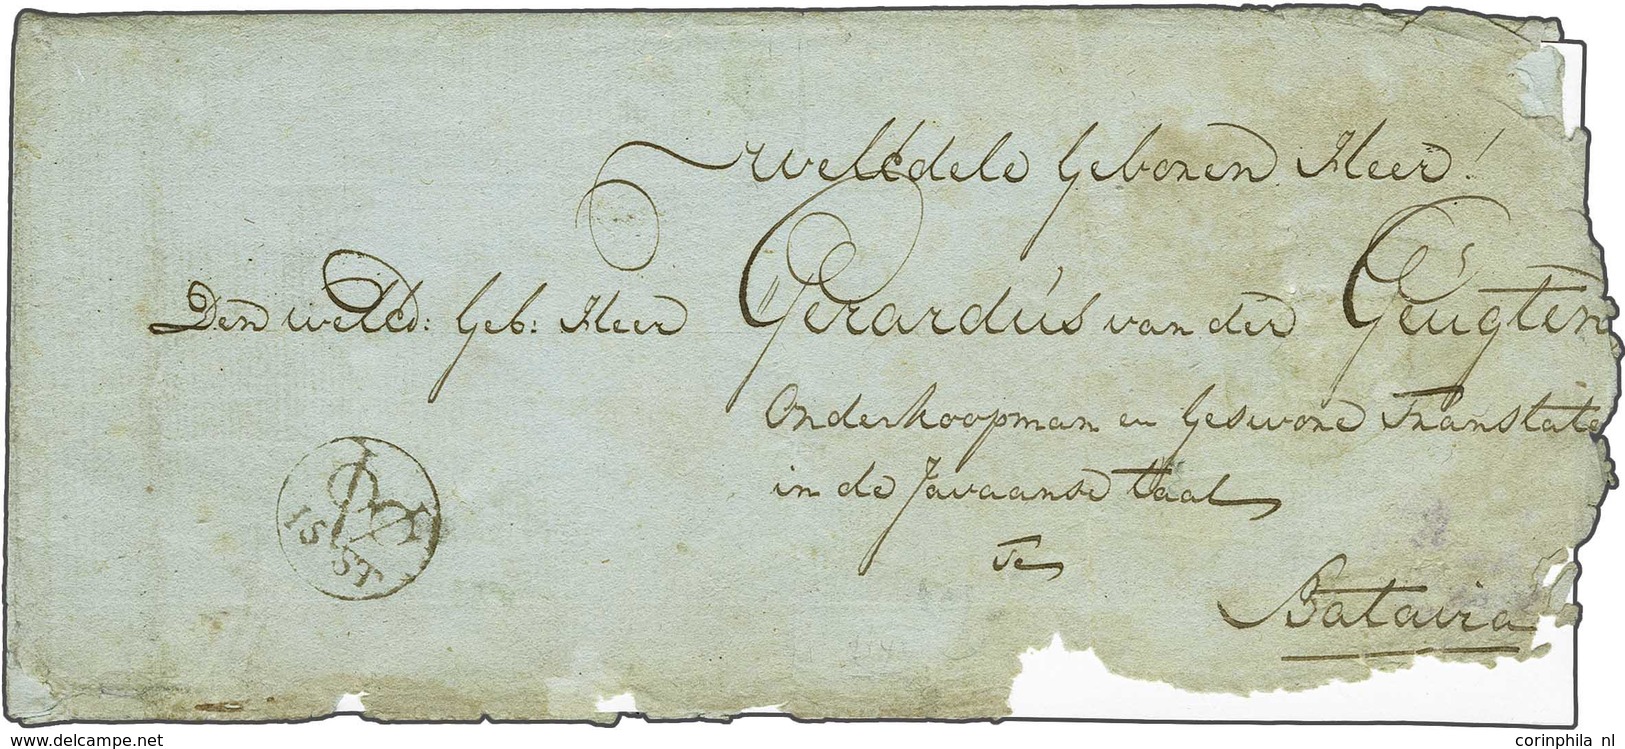 WelEdele Geboren Heer!
Den WelEd: Geb: Heer Gerardús van der Geúgten
Onderkoopman en Geswore Translate
in de Javaanse Taal
Te
Batavia
15 ST
www.delcampe.net
corinphila nl